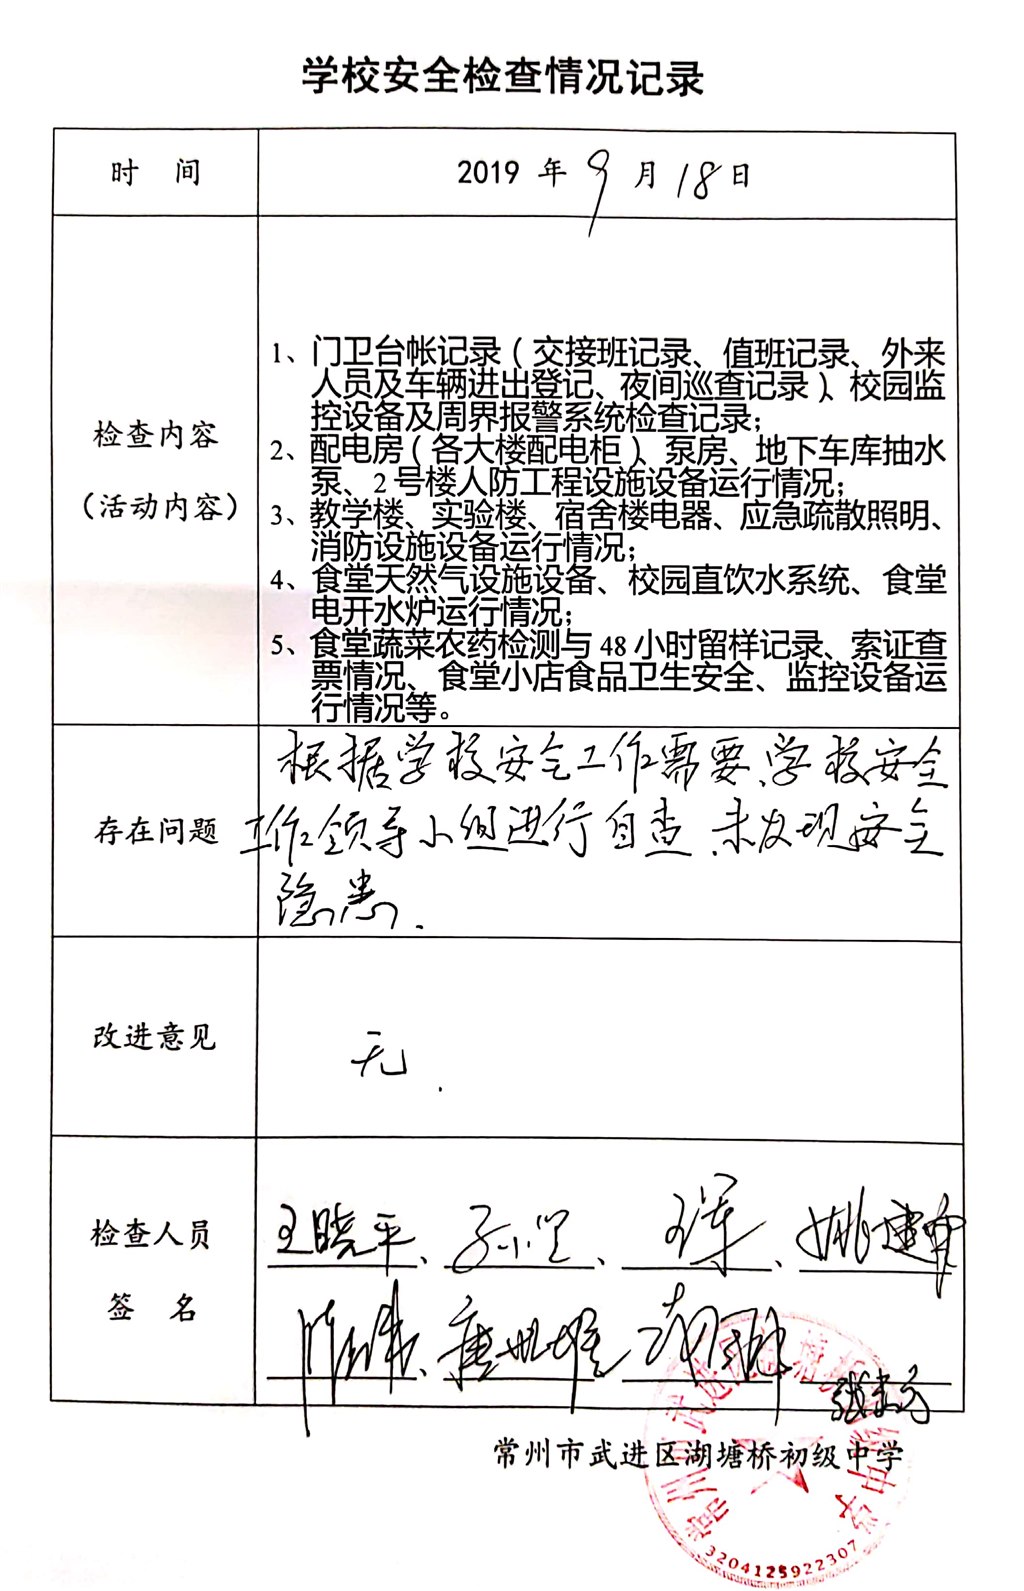 学校安全检查情况记录
时 间
2019 年 9 月 18 日
检查内容
（活动内容）
1、门卫台帐记录（交接班记录、值班记录、外来
人员及车辆进出登记、夜间巡查记录）、校园监
控设备及周界报警系统检查记录；
2、配电房（各大楼配电柜）、泵房、地下车库抽水
泵、2号楼人防工程设施设备运行情况；
3、教学楼、实验楼、宿舍楼电器、应急疏散照明、
消防设施设备运行情况；
4、食堂天然气设施设备、校园直饮水系统、食堂
电开水炉运行情况；
5、食堂蔬菜农药检测与48小时留样记录、索证查
票情况、食堂小店食品卫生安全、监控设备运
行情况等。
存在问题
根据学校安全工作需要，学校安全
工作领导小组进行自查，未发现安全
隐患.
改进意见
无.
检查人员
签 名
王晓平、
常州市武进区湖塘桥初级中学
3204125922307